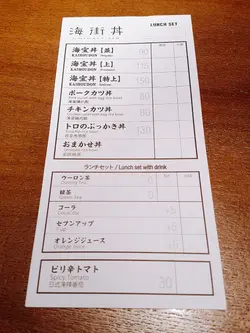 海街丼
LUNCH SET
海宝丼【並】 90
KAIHOUDON (Regular)
海宝丼【上】 110
KAIHOUDON (Premium)
海宝丼【特上】 150
KAIHOUDON
ポークカツ丼 80
チキンカツ丼 80
トロのぶっかき丼 130
おまかせ丼
ランチセット / Lunch set with drink
ウーロン茶 0
Oolong tea
緑茶 0
Green tea
コーラ +5
Coca Cola
セブンアップ +5
7-up
オレンジジュース +5
Orange Juice
ピリ辛トマト 30
Spicy Tomato